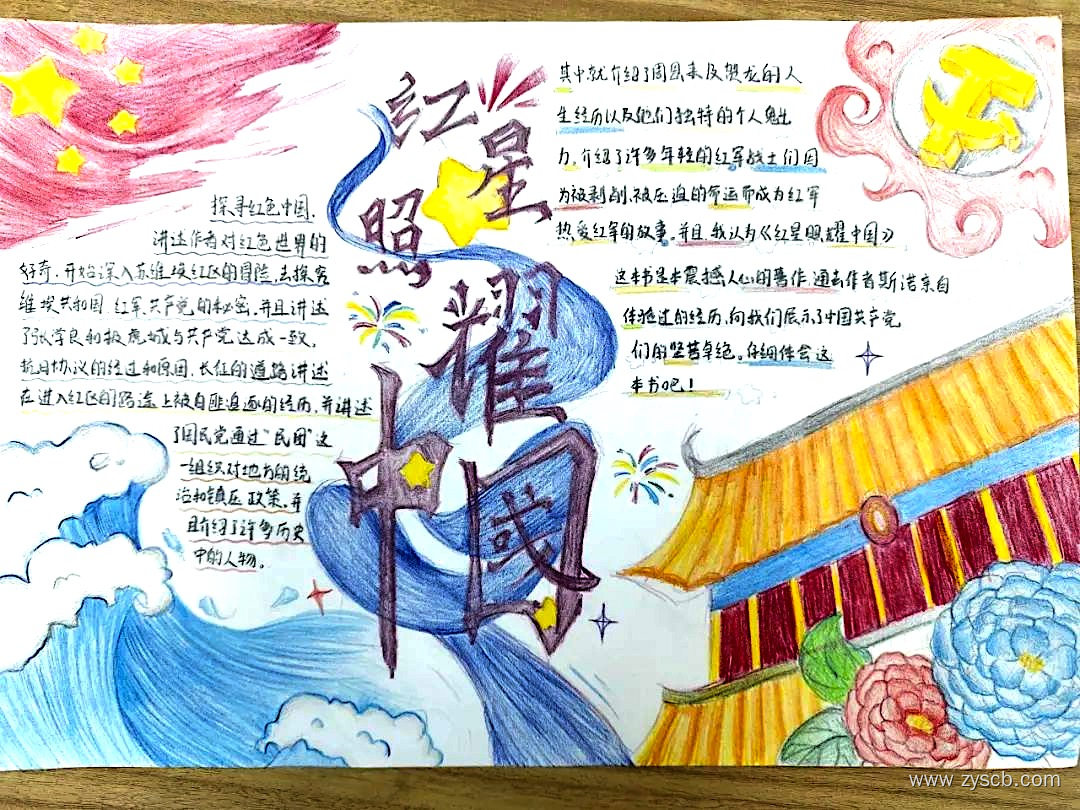 红星照耀中国
探寻红色中国.
讲述作者对红色世界的
好奇.开始深入苏维埃红区的冒险,去探究
维埃共和国.红军共产党的秘密,并且讲述
了张学良和杨虎城与共产党达成一致,
抗日协议的经过和原因.长征的道路讲述
在进入红区的路途上被白匪追逐的经历,并讲述
了国民党通过“民团”这
一组织对地方的统
治和镇压政策,并
且介绍了许多历史
中的人物。
其中就介绍了周恩来及贺龙的人
生经历以及他们独特的个人魅
力,介绍了许多年轻的红军战士们因
为被剥削,被压迫的命运而成为红军
热爱红军的故事,并且,我认为《红星照耀中国》
这本书是本震撼人心的著作,通去作者斯诺亲自
体验过的经历,向我们展示了中国共产党
们的坚苦卓绝。仔细体会这
本书吧!
www.zyscb.com